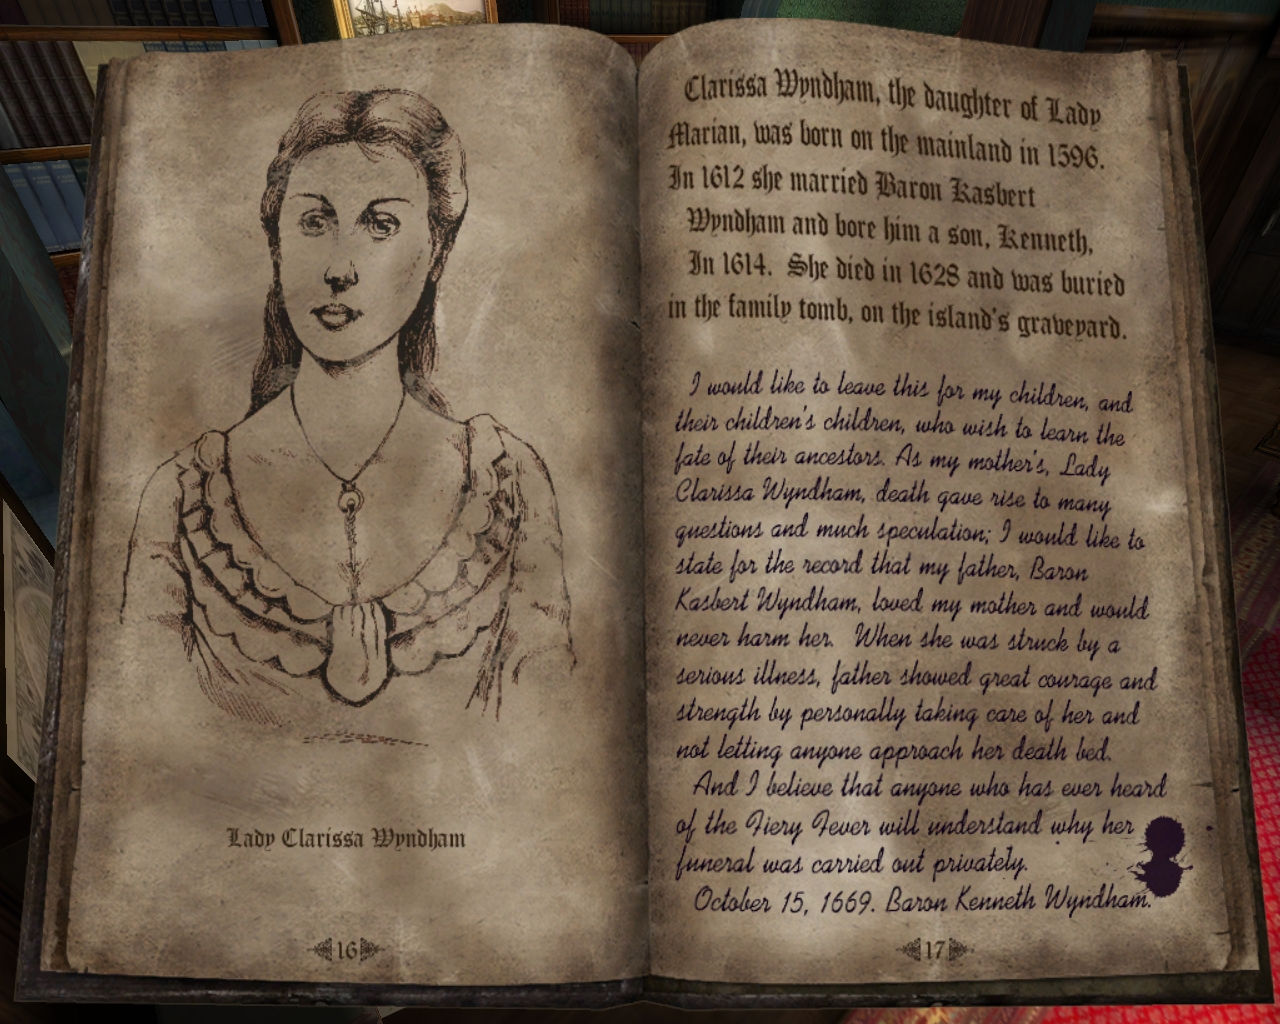 Lady Clarissa Wyndham
16
Clarissa Wyndham, the daughter of Lady
Marian, was born on the mainland in 1596.
In 1612 she married Baron Kasbert
Wyndham and bore him a son, Kenneth,
In 1614. She died in 1628 and was buried
in the family tomb, on the island's graveyard.
I would like to leave this for my children, and
their children's children, who wish to learn the
fate of their ancestors. As my mother's, Lady
Clarissa Wyndham, death gave rise to many
questions and much speculation; I would like to
state for the record that my father, Baron
Kasbert Wyndham, loved my mother and would
never harm her. When she was struck by a
serious illness, father showed great courage and
strength by personally taking care of her and
not letting anyone approach her death bed.
And I believe that anyone who has ever heard
of the Fiery Fever will understand why her
funeral was carried out privately.
October 15, 1669. Baron Kenneth Wyndham.
17